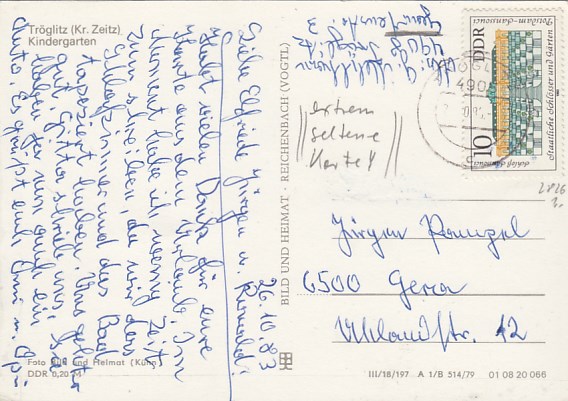 Tröglitz (Kr. Zeitz)
Kindergarten
26.10.83
Liebe Elfriede, Jürgen u.
Habt vielen Dank für eure
Karte aus dem Urlaub. Im
Moment habe ich wenig Zeit
zum schreiben, da wir das
Schlafzimmer und das Bad
tapeziert haben. Uns geht es
gut.
haben wir nun auch ein
Auto. Es grüßt euch
Foto Bild und Heimat (Kühn)
DDR 0,20 M
BILD UND HEIMAT · REICHENBACH (VOGTL)
4908 Tröglitz
extrem
seltene
Karte!
DDR
10
Staatliche Schlösser und Gärten
Potsdam-Sanssouci
Schloß Sanssouci
490
Jürgen
6500 Gera
Uhlandstr. 12
III/18/197 A 1/B 514/79 01 08 20 066